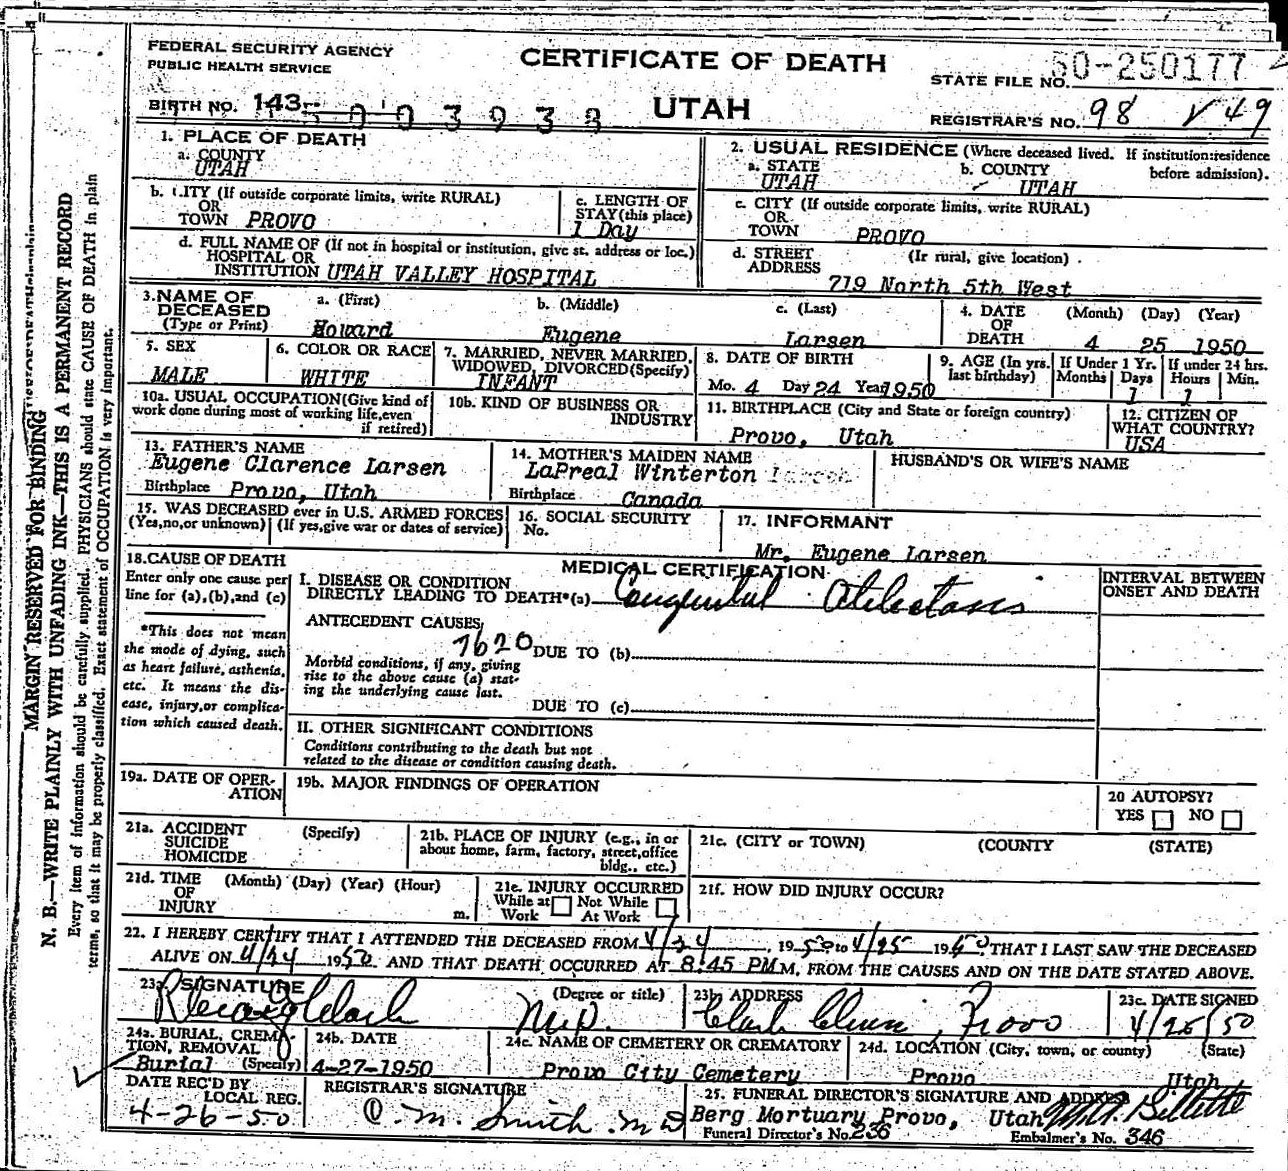 FEDERAL SECURITY AGENCY
PUBLIC HEALTH SERVICE
CERTIFICATE OF DEATH
UTAH
STATE FILE NO. 50-250177
BIRTH NO. 143-
REGISTRAR'S NO. 98 √ 49
1. PLACE OF DEATH
a. COUNTY
UTAH
b. CITY (If outside corporate limits, write RURAL)
OR
TOWN PROVO
c. LENGTH OF
STAY (this place)
1 Day
d. FULL NAME OF (If not in hospital or institution, give st. address or loc.)
HOSPITAL OR
INSTITUTION UTAH VALLEY HOSPITAL
2. USUAL RESIDENCE (Where deceased lived. If institution: residence
before admission).
a. STATE
UTAH
b. COUNTY
UTAH
c. CITY (If outside corporate limits, write RURAL)
OR
TOWN PROVO
d. STREET
ADDRESS
(Ir rural, give location)
719 North 5th West
3. NAME OF
DECEASED
(Type or Print)
a. (First)
Howard
b. (Middle)
Eugene
c. (Last)
Larsen
4. DATE
OF
DEATH
(Month) (Day) (Year)
4 25 1950
5. SEX
MALE
6. COLOR OR RACE
WHITE
7. MARRIED, NEVER MARRIED,
WIDOWED, DIVORCED (Specify)
INFANT
8. DATE OF BIRTH
Mo. 4 Day 24 Year 1950
9. AGE (In yrs.
last birthday)
If Under 1 Yr.
Months Days
1
If under 24 hrs.
Hours Min.
1
10a. USUAL OCCUPATION (Give kind of
work done during most of working life, even
if retired)
10b. KIND OF BUSINESS OR
INDUSTRY
11. BIRTHPLACE (City and State or foreign country)
Provo, Utah
12. CITIZEN OF
WHAT COUNTRY?
USA
13. FATHER'S NAME
Eugene Clarence Larsen
Birthplace Provo, Utah
14. MOTHER'S MAIDEN NAME
LaPreal Winterton
Birthplace Canada
HUSBAND'S OR WIFE'S NAME
15. WAS DECEASED ever in U.S. ARMED FORCES
(Yes, no, or unknown) (If yes, give war or dates of service)
16. SOCIAL SECURITY
No.
17. INFORMANT
Mr. Eugene Larsen
18. CAUSE OF DEATH
Enter only one cause per
line for (a), (b), and (c)
*This does not mean
the mode of dying, such
as heart failure, asthenia,
etc. It means the dis-
ease, injury, or complica-
tion which caused death.
MEDICAL CERTIFICATION
I. DISEASE OR CONDITION
DIRECTLY LEADING TO DEATH*(a) Congenital Atelectasis
ANTECEDENT CAUSES
7620 DUE TO (b)
Morbid conditions, if any, giving
rise to the above cause (a) stat-
ing the underlying cause last.
DUE TO (c)
II. OTHER SIGNIFICANT CONDITIONS
Conditions contributing to the death but not
related to the disease or condition causing death.
INTERVAL BETWEEN
ONSET AND DEATH
19a. DATE OF OPER-
ATION
19b. MAJOR FINDINGS OF OPERATION
20 AUTOPSY?
YES NO
21a. ACCIDENT
SUICIDE
HOMICIDE
(Specify)
21b. PLACE OF INJURY (e.g., in or
about home, farm, factory, street, office
bldg., etc.)
21c. (CITY or TOWN) (COUNTY (STATE)
21d. TIME
OF
INJURY
(Month) (Day) (Year) (Hour)
m.
21e. INJURY OCCURRED
While at Not While
Work At Work
21f. HOW DID INJURY OCCUR?
22. I HEREBY CERTIFY THAT I ATTENDED THE DECEASED FROM 4/24, 1950 to 4/25 1950, THAT I LAST SAW THE DECEASED
ALIVE ON 4/24 1950 AND THAT DEATH OCCURRED AT 8:45 PM M, FROM THE CAUSES AND ON THE DATE STATED ABOVE.
23a. SIGNATURE
R Craig Clark
(Degree or title)
M.D.
23b. ADDRESS
Clark Clinic, Provo
23c. DATE SIGNED
4/26/50
24a. BURIAL, CREMA-
TION, REMOVAL
Burial (Specify)
24b. DATE
4-27-1950
24c. NAME OF CEMETERY OR CREMATORY
Provo City Cemetery
24d. LOCATION (City, town, or county) (State)
Provo Utah
DATE REC'D BY
LOCAL REG.
4-26-50
REGISTRAR'S SIGNATURE
O. M. Smith. MD
25. FUNERAL DIRECTOR'S SIGNATURE AND ADDRESS
Berg Mortuary Provo, Utah Gillette
Funeral Director's No. 236
Embalmer's No. 346
MARGIN RESERVED FOR BINDING
N. B.—WRITE PLAINLY WITH UNFADING INK—THIS IS A PERMANENT RECORD
Every item of information should be carefully supplied. PHYSICIANS should state CAUSE OF DEATH in plain
terms, so that it may be properly classified. Exact statement of OCCUPATION is very important.